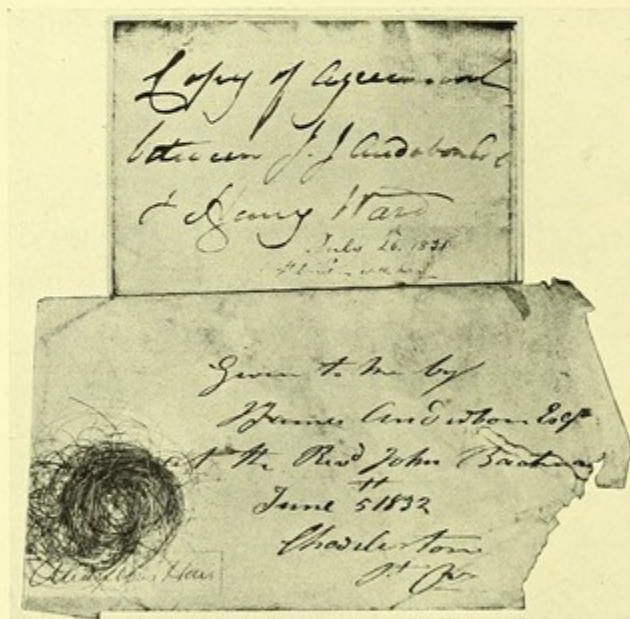 Copy of Agreement
between J. J Audubon
& Henry Ward
July 26. 1831
Given to me by
James Audubon Esqr
at the Revd John Bachman
June 5th 1832
Charleston
Audubons Hair